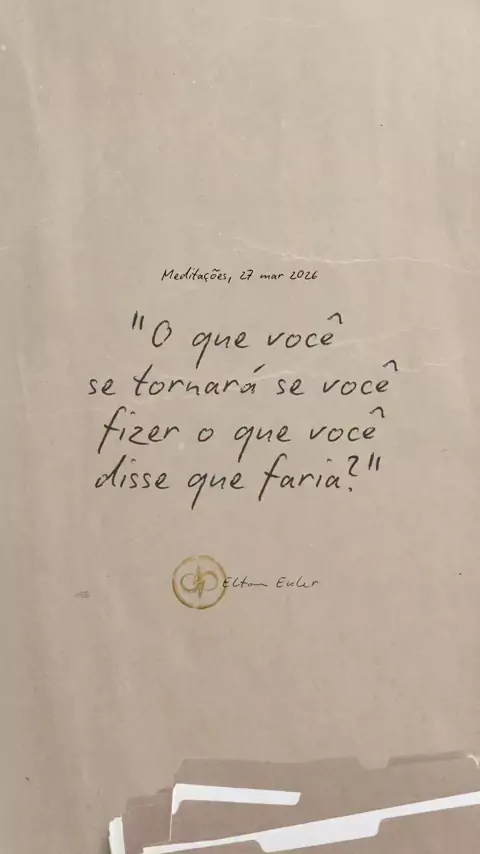 Meditações, 27 mar 2026
"O que você
se tornará se você
fizer o que você
disse que faria?"
Elton Euler